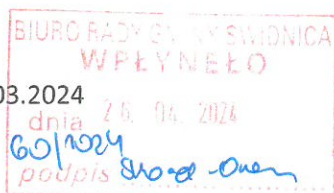 BIURO RADY GMINY ŚWIDNICA
WPŁYNĘŁO
03.2024
dnia 26. 04. 2024
60/2024
podpis